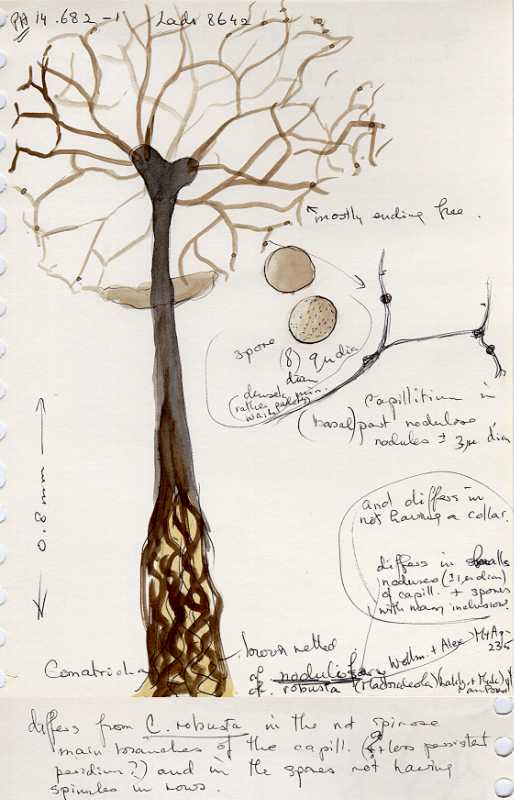 PA 14.682-1 Lado 8642
mostly ending free.
spore
(8) 9µ dia
diam
densely min.
(rather paler)
warted
capillitium in
(basal) part nodulose
nodules ± 3µ dia
0.8 mm
and differs in
not having a collar.
differs in
noduses (±1µ diam)
of capill. + spores
with many inclusions.
brown netted
Comatricha cf. nodulifera Wollm. + Alex.
cf. robusta
differs from C. robusta in the not spinose
main branches of the capill. (& less persistent
peridium?) and in the spores not having
spinules in rows.